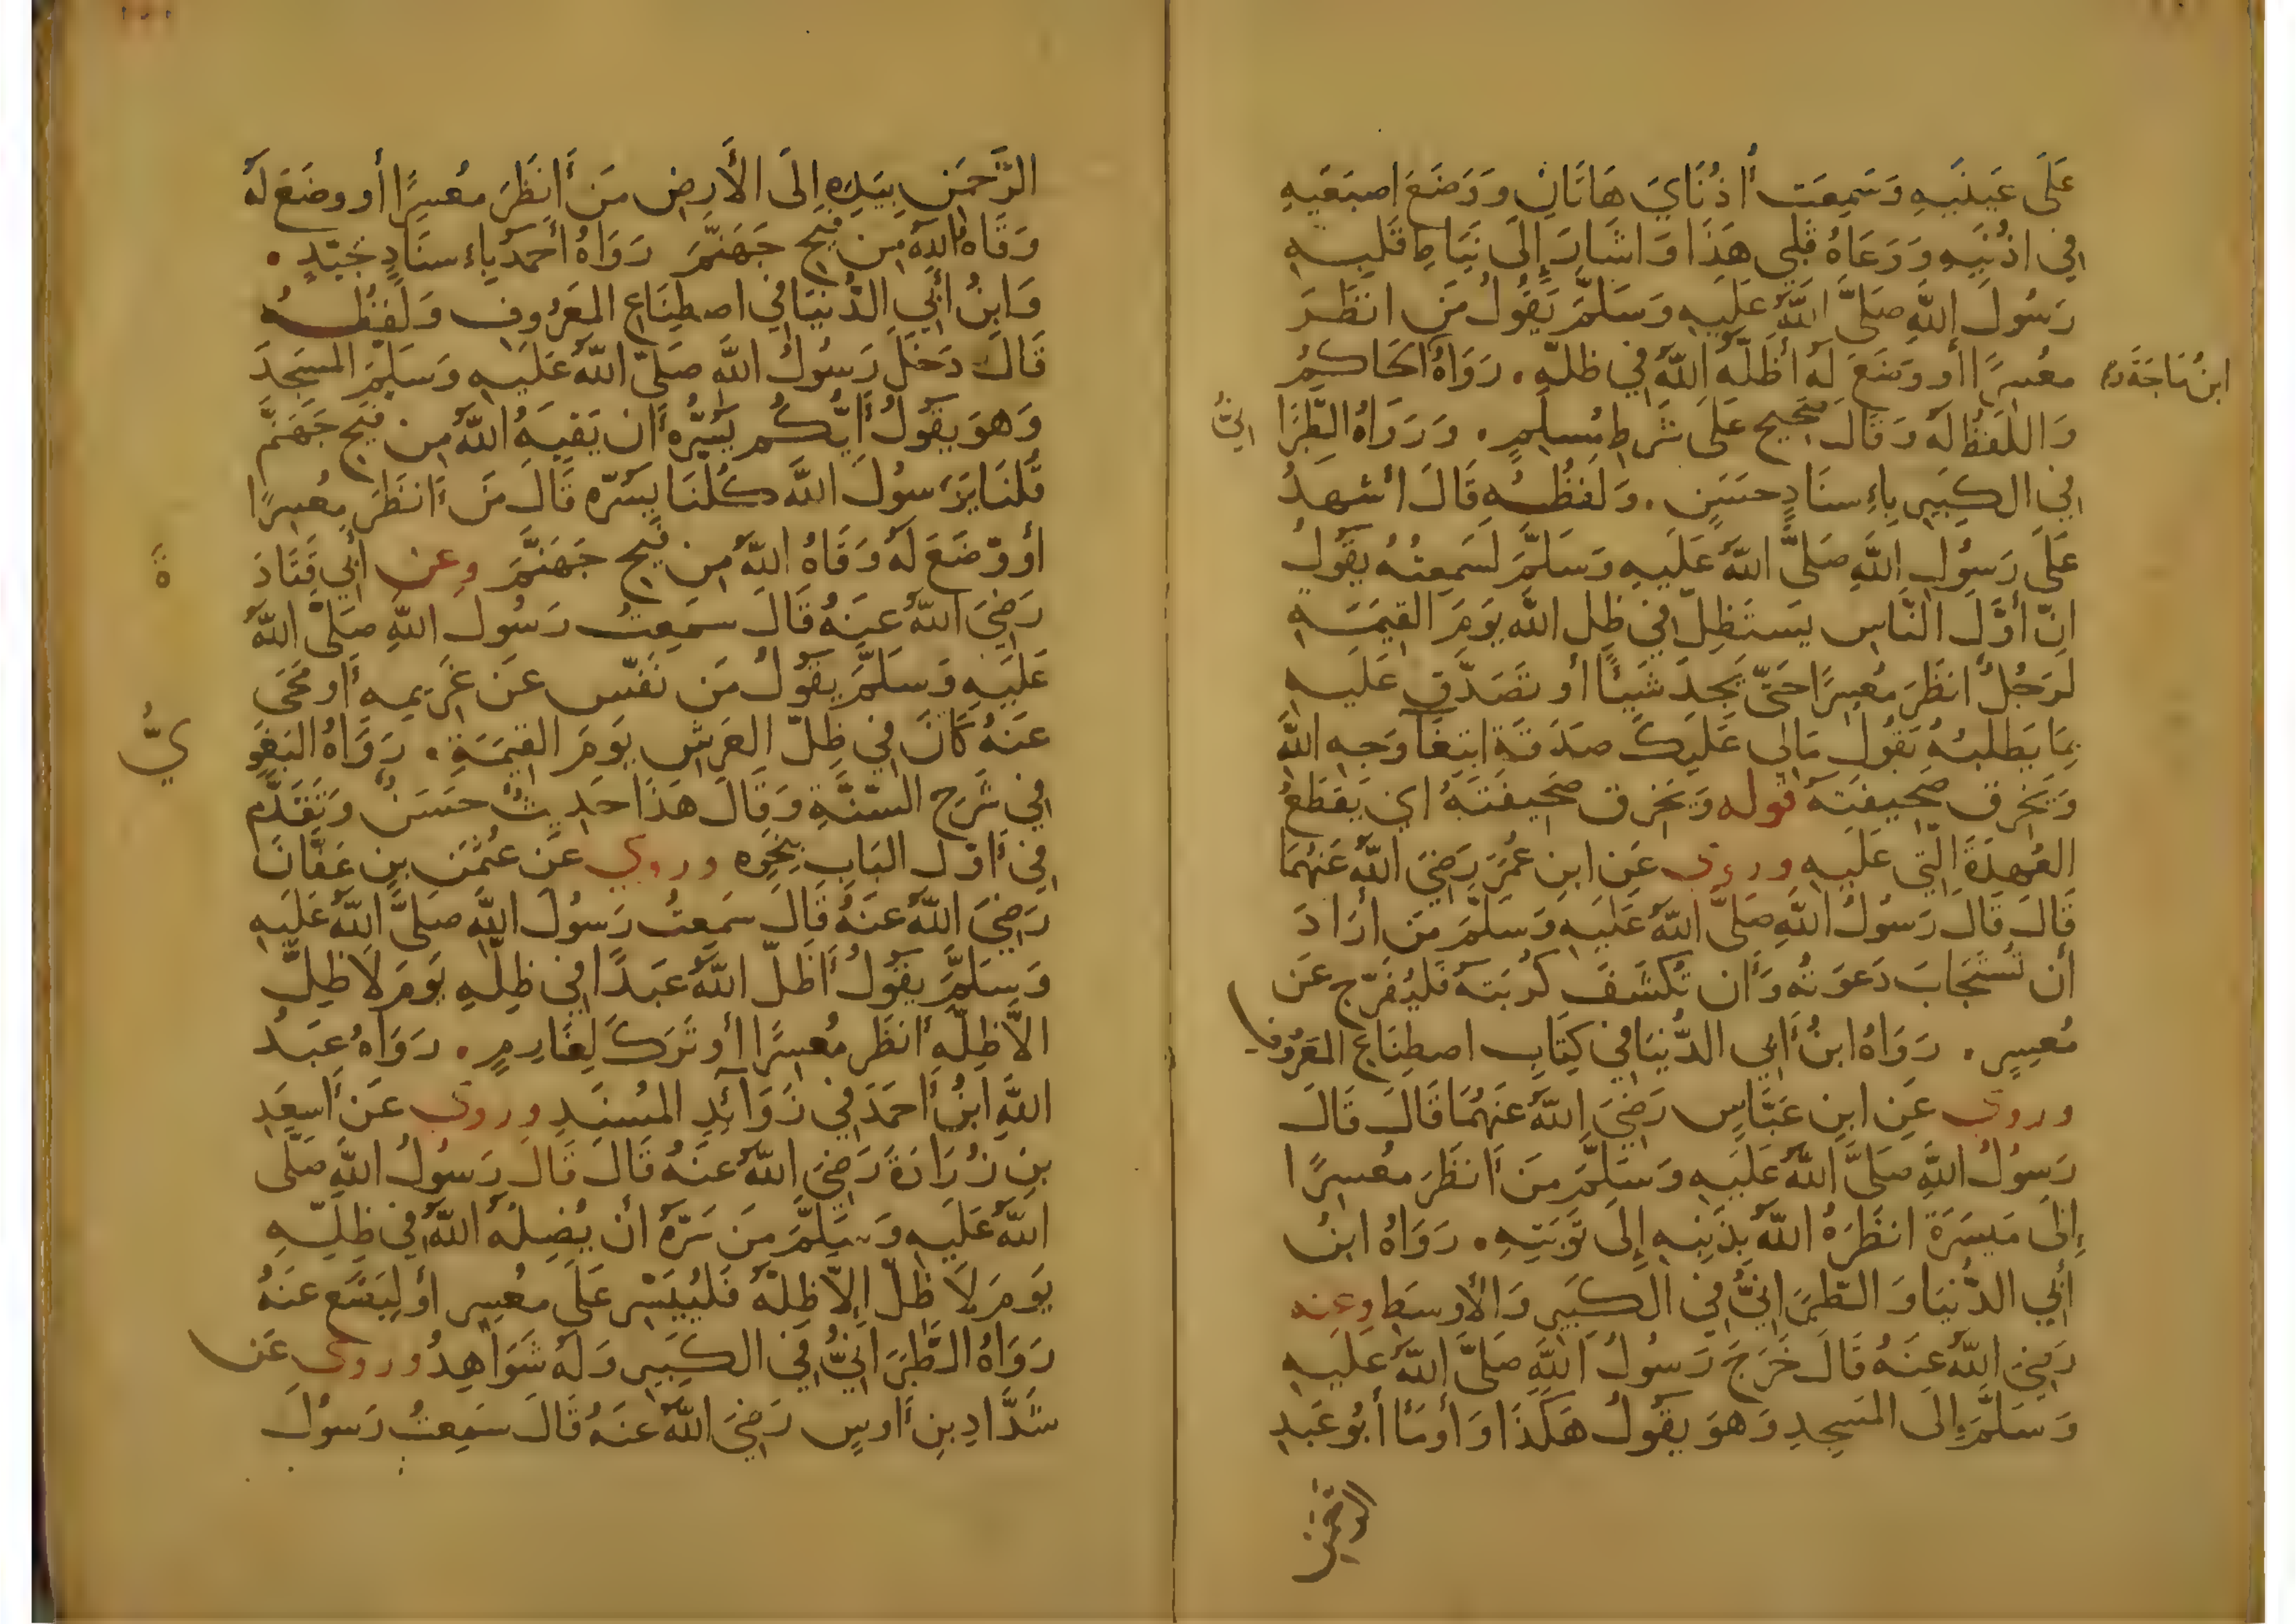 عَلَى عَينَيهِ وَسَمِعَت أُذُنَايَ هَاتَانِ وَوَضَعَ اصبَعَيهِ
فِي اذُنَيهِ وَوَعَاهُ قَلبِي هَذَا وَاشَارَ إِلَى نِيَاطِ قَلبِهِ
رَسُولَ اللَّهِ صَلَّى اللَّهُ عَلَيهِ وَسَلَّمَ يَقُولُ مَن انظَرَ
مُعسِرًا أَو وَضَعَ لَهُ أَظَلَّهُ اللَّهُ فِي ظلّهِ. رَوَاهُ الحَاكِمُ
ابنُ مَاجَة وَ
وَاللَّفظُ لَهُ وَقَالَ صَحِيح عَلَى شَرطِ مُسلِمٍ. وَرَوَاهُ الطَّبَرَا
انِيُّ
فِي الكَبِيرِ بِاءِسنَادٍ حسَنٍ. وَلَفظُهُ قَالَ أشهَدُ
عَلَى رَسُولِ اللَّهِ صَلَّى اللَّهُ عَلَيهِ وَسَلَّمَ لَسَمِعتُهُ يَقُولُ
انّ أَوَّلَ النَّاسِ يَستَظِلّ فِي ظِلّ اللَّهِ يَومَ القِيَمَةِ
لَرَجُلٌ انظَرَ مُعسِرًا حَتَّى يَجِدَ شَيئًا أَو تَصَدَّقَ عَلَيهِ
بِمَا يَطلُبُهُ يَقُولُ مَالِي عَلَيكَ صَدَقَة ابتِغَآ وَجهِ اللَّهِ
وَيَخرِق صَحِيفَتَهُ قوله وَيَخرِق صَحِيفَتَهُ اي يَقطَعُ
العُهدَةَ الَّتِي عَلَيهِ وروي عَن ابنِ عُمَرَ رَضِيَ اللَّهُ عَنهُمَا
قَالَ قَالَ رَسُولُ اللَّهِ صَلَّى اللَّهُ عَلَيهِ وَسَلَّمَ مَن أَرَادَ
أَن تُستَجَابَ دَعوَتُه وَأَن تُكشَفَ كُربَتُهُ فَليُفَرِّج عَن
مُعسِرٍ. رَوَاهُ ابنُ أَبِي الدُّنيَا فِي كِتَابِ اصطِنَاعِ المَعرُوفِ
وروي عَنِ ابنِ عَبَّاسٍ رَضِيَ اللَّهُ عَنهُمَا قَالَ قَالَ
رَسُولُ اللَّهِ صَلَّى اللَّهُ عَلَيهِ وَسَلَّمَ مَن أَنظَرَ مُعسِرًا
إِلَى مَيسَرَة انظَرَهُ اللَّهُ بِذَنبِهِ إِلَى تَوبَتِهِ. رَوَاهُ ابنُ
أَبِي الدُّنيَا وَالطَّبَرَانِيُّ فِي الكَبِيرِ وَالأَوسَطِ وعنه
رَضِيَ اللَّهُ عَنهُ قَالَ خَرَجَ رَسُولُ اللَّهِ صَلَّى اللَّهُ عَلَيهِ
وَسَلَّمَ إِلَى المَسجِدِ وَهوَ يَقُولُ هَكَذَا وَأَومَأَ أَبُو عَبدِ
الرَّحمَن
الرَّحمَنِ بِيَدِهِ إِلَى الأَرضِ مَن أَنظَرَ مُعسِرًا أَو وضَعَ لَهُ
وَقَاهُ اللَّهُ مِن فَيحِ جَهَنَّمَ رَوَاهُ أَحمَد بِاءِسنَادٍ جَيّدٍ.
وَابنُ أَبِي الدُّنيَا فِي اصطِنَاعِ المَعرُوفِ وَلَفظُهُ
قَالَ دَخَلَ رَسُولُ اللَّهِ صَلَّى اللَّهُ عَلَيهِ وَسَلَّمَ المَسجِدَ
وَهوَ يَقُولُ أَيُّكُم يَسُرُّهُ أَن يَقِيَهُ اللَّهُ مِن فَيحِ جَهَنَّم
قُلنَا يَرَسُولَ اللَّهِ كُلُّنَا يَسُرّه قَالَ مَن أَنظَرَ مُعسِرًا
أَو وَضَعَ لَهُ وَقَاهُ اللَّهُ مِن فَيحِ جَهَنَّمَ وعن أَبِي قَتَادَ
ةَ
رَضِيَ اللَّهُ عَنهُ قَالَ سَمِعتُ رَسُولَ اللَّهِ صَلَّى اللَّهُ
عَلَيهِ وَسَلَّمَ يَقُولُ مَن نَفّسَ عَن غَرِيمِهِ أَو مَحَى
عَنهُ كَانَ فِي ظِلّ العَرشِ يَومَ القِيَمَةِ. رَوَاهُ البَغَوِ
يُّ
فِي شَرحِ السّنَّةِ وَقَالَ هَذَا حَدِيثٌ حسَنٌ وَتَقَدَّم
فِي أَوّلِ البَابِ بِنَحوِه وروي عَن عُثمَنَ بنِ عَفَّانَ
رَضِيَ اللَّهُ عَنهُ قَالَ سَمِعتُ رَسُولَ اللَّهِ صَلَّى اللَّهُ عَلَيهِ
وَسَلَّمَ يَقُولُ أَظَلَّ اللَّهُ عَبدًا فِي ظِلّهِ يَومَ لَا ظِلَّ
الَّا ظِلّه أَنظَرَ مُعسِرًا أَو تَرَكَ لِغَارِمٍ. رَوَاهُ عَبدُ
اللَّهِ ابنُ أَحمَدَ فِي زَوَآئِدِ المُسنَدِ وروي عَن أَسعَدِ
بنِ زُرَارَةَ رَضِيَ اللَّهُ عَنهُ قَالَ قَالَ رَسُولُ اللَّهِ صَلَّى
اللَّهُ عَلَيهِ وَسَلَّمَ مَن سَرَّهُ أَن يُضِلَّهُ اللَّهُ فِي ظِلِّهِ
يَومَ لَا ظِلّ إِلَّا ظِلّهُ فَليُيَسّر عَلَى مُعسِرٍ أَو لِيَضَع عَنهُ
رَوَاهُ الطَّبَرَانِيُّ فِي الكَبِيرِ وَلَهُ شَوَاهِدُ وروي عَن
شَدَّادِ بنِ أَوسٍ رَضِيَ اللَّهُ عَنهُ قَالَ سَمِعتُ رَسُولَ